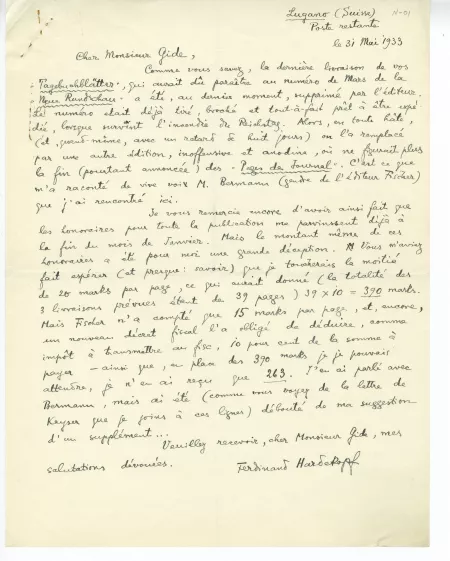 Lugano (Suisse)
N-01
Poste restante
le 31 Mai 1933
Cher Monsieur Gide,
Comme vous savez, la dernière livraison de vos
"Tagebuchblätter", qui aurait dû paraître au numéro de Mars de la
"Neue Rundschau" a été, au dernier moment, supprimé par l'éditeur.
Le numéro était déjà tiré, broché et tout-à-fait prêt à être expé-
dié, lorsque survint l'incendie du Reichstag. Alors, en toute hâte,
(et, quand-même, avec un retard de huit jours) on l'a remplacé
par une autre édition, inoffensive et anodine, où ne figurait plus
la fin (pourtant annoncée) des "Pages de Journal". C'est ce que
m'a raconté de vive voix M. Bermann (gendre de l'éditeur Fischer)
que j'ai rencontré ici.
Je vous remercie encore d'avoir ainsi fait que
les honoraires pour toute la publication me parvinssent déjà à
la fin du mois de Janvier. Mais le montant même de ces
honoraires a été pour moi une grande déception. Vous m'aviez
fait espérer (et presque: savoir) que je toucherais la moitié
de 20 marks par page, ce qui aurait donné (la totalité des
3 livraisons prévues étant de 39 pages) 39 x 10 = 390 marks.
Mais Fischer n'a compté que 15 marks par page, et, encore,
un nouveau décret fiscal l'a obligé de déduire, comme
impôt à transmettre au fisc, 10 pour cent de la somme à
payer - ainsi que, en place des 390 marks que je pouvais
attendre, je n'en ai reçu que 263. J'en ai parlé avec
Bermann, mais ai été (comme vous voyez de la lettre de
Kayser que je joins à ces lignes) débouté de ma suggestion
d'un supplément...
Veuillez recevoir, cher Monsieur Gide, mes
salutations dévouées.
Ferdinand Hardekopf